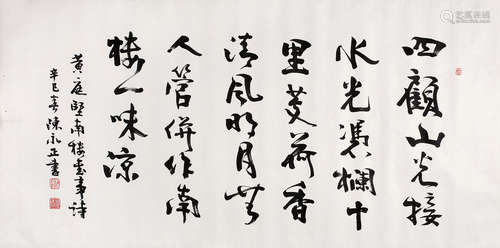 四顧山光接
水光憑欄十
里芰荷香
清風明月無
人管併作南
樓一味涼
黃庭堅南樓書事詩
辛巳春陳永正書